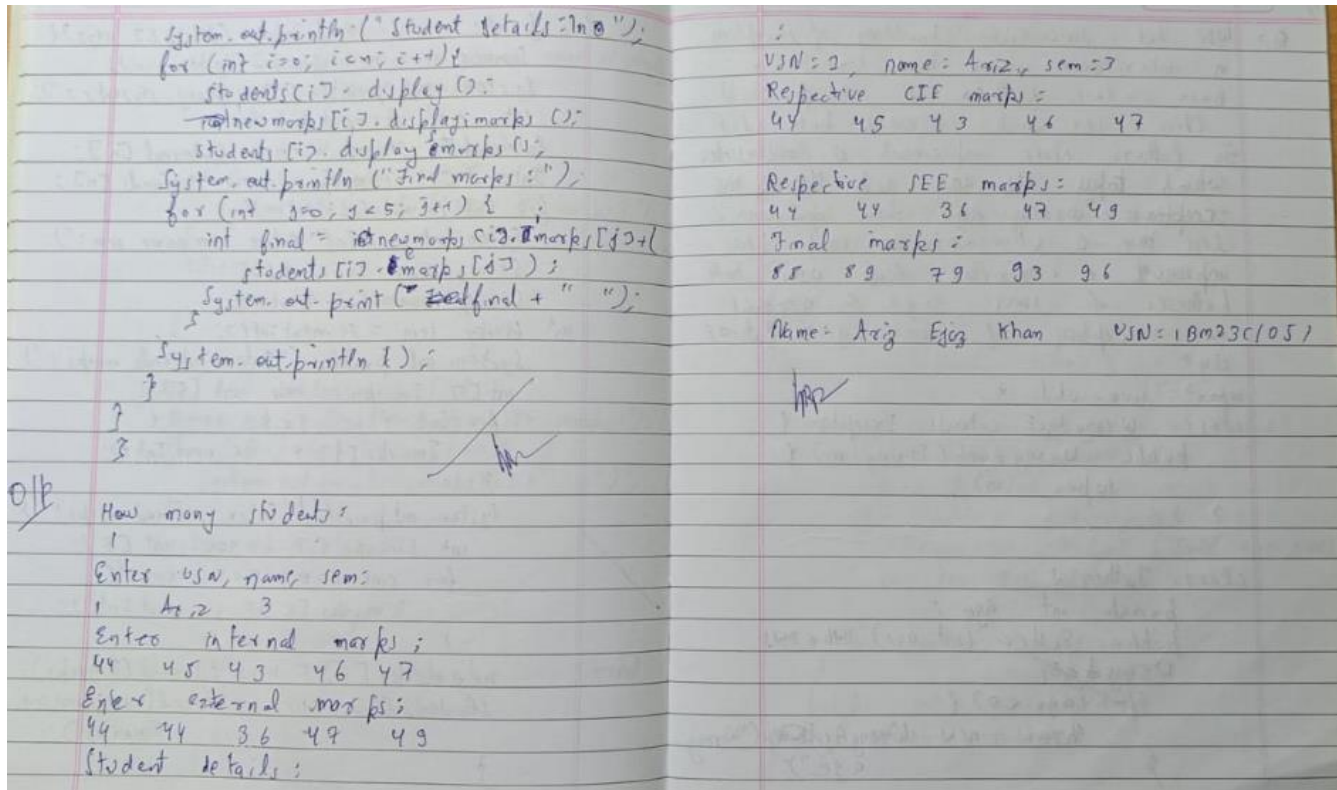 System.out.println ("Student details:\n");
for (int i=0; i<n; i++){
students[i]. display ();
newmarks[i]. displayimarks ();
students [i]. display emarks ();
System.out.println ("Final marks : ");
for (int j=0; j<5; j++) {
int final = newmarks [i]. marks [j]+(
students [i]. emarks [j] );
System. out. print ( final + " ");
}
System. out. println ( );
}
}
}
O/P
How many students:
1
Enter USN, name, sem:
1 Ariz 3
Enter internal marks :
44 45 43 46 47
Enter external marks :
44 44 36 47 49
Student details :
:
USN = 1, name : Ariz, sem : 3
Respective CIE marks :
44 45 43 46 47
Respective SEE marks :
44 44 36 47 49
Final marks :
88 89 79 93 96
Name: Ariz Ejaz Khan USN: 1BM23CS051